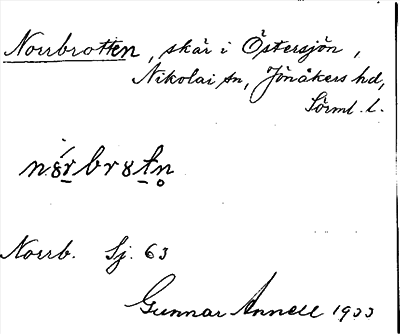 Norrbrotten, skär i Östersjön,
Nikolai sn, Jönåkers hd,
Sörml. l.
Norrb. Sj. 63
Gunnar Annell 1933